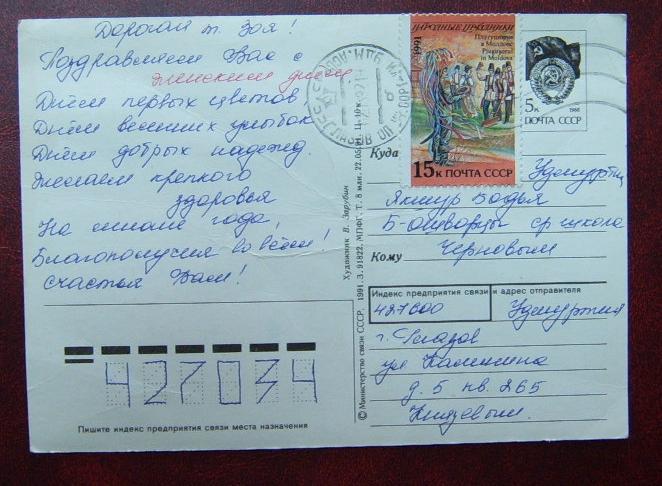 Дорогая т. Зоя!
Поздравляем Вас с
женским днём
Днём первых цветов
Днём весенних улыбок
Днём добрых надежд.
Желаем крепкого
здоровья
На многие года,
Благополучия во всём!
счастья Вам!
427034
Пишите индекс предприятия связи места назначения
© Министерство связи СССР. 1991. З. 91822. МПФГ. Т. 8 млн. 22.05. Ц. 10 к.
Художник В. Зарубин
НАРОДНЫЕ ПРАЗДНИКИ
1991
Плугушорул
в Молдове
Plugușorul
in Moldova
15к ПОЧТА СССР
5к
1988
ПОЧТА СССР
Куда
Удмуртия
Якшур Бодья
ср школа
Кому
Черновым
Индекс предприятия связи и адрес отправителя
427600
Удмуртия
г. Глазов
ул Калинина
д. 5 кв. 265
Князевым.